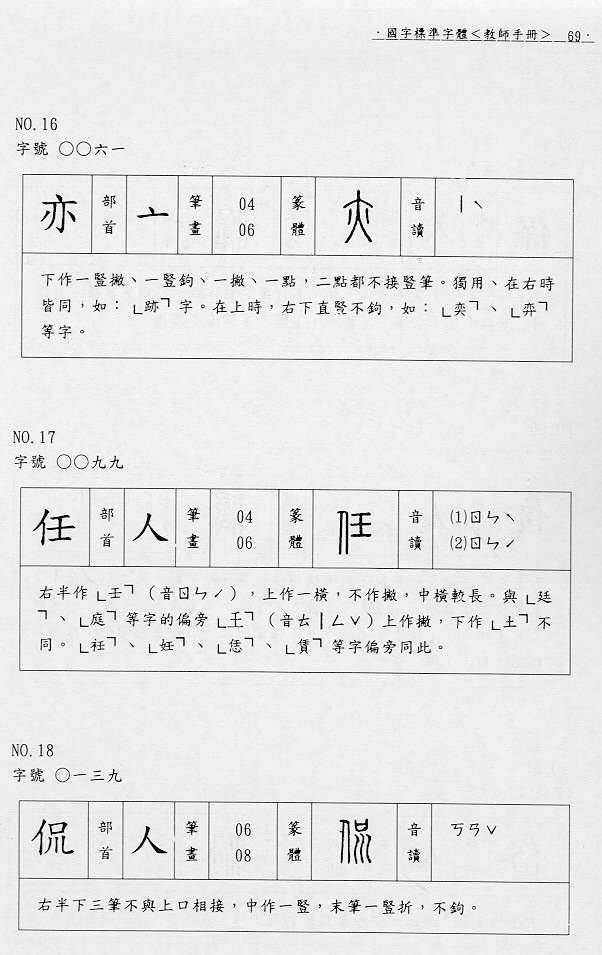 ·國字標準字體＜教師手冊＞ 69·
NO.16
字號 〇〇六一
亦 部首 亠 筆畫 04 06 篆體 音讀 ㄧˋ
下作一豎撇、一豎鉤、一撇、一點，二點都不接豎筆。獨用、在右時
皆同，如：「跡」字。在上時，右下直豎不鉤，如：「奕」、「弈」
等字。
NO.17
字號 〇〇九九
任 部首 人 筆畫 04 06 篆體 任 音讀 (1)ㄖㄣˋ (2)ㄖㄣˊ
右半作「壬」（音ㄖㄣˊ），上作一橫，不作撇，中橫較長。與「廷
」、「庭」等字的偏旁「𡈼」（音ㄊㄧㄥˇ）上作撇，下作「土」不
同。「衽」、「妊」、「恁」、「賃」等字偏旁同此。
NO.18
字號 〇一三九
侃 部首 人 筆畫 06 08 篆體 侃 音讀 ㄎㄢˇ
右半下三筆不與上口相接，中作一豎，末筆一豎折，不鉤。